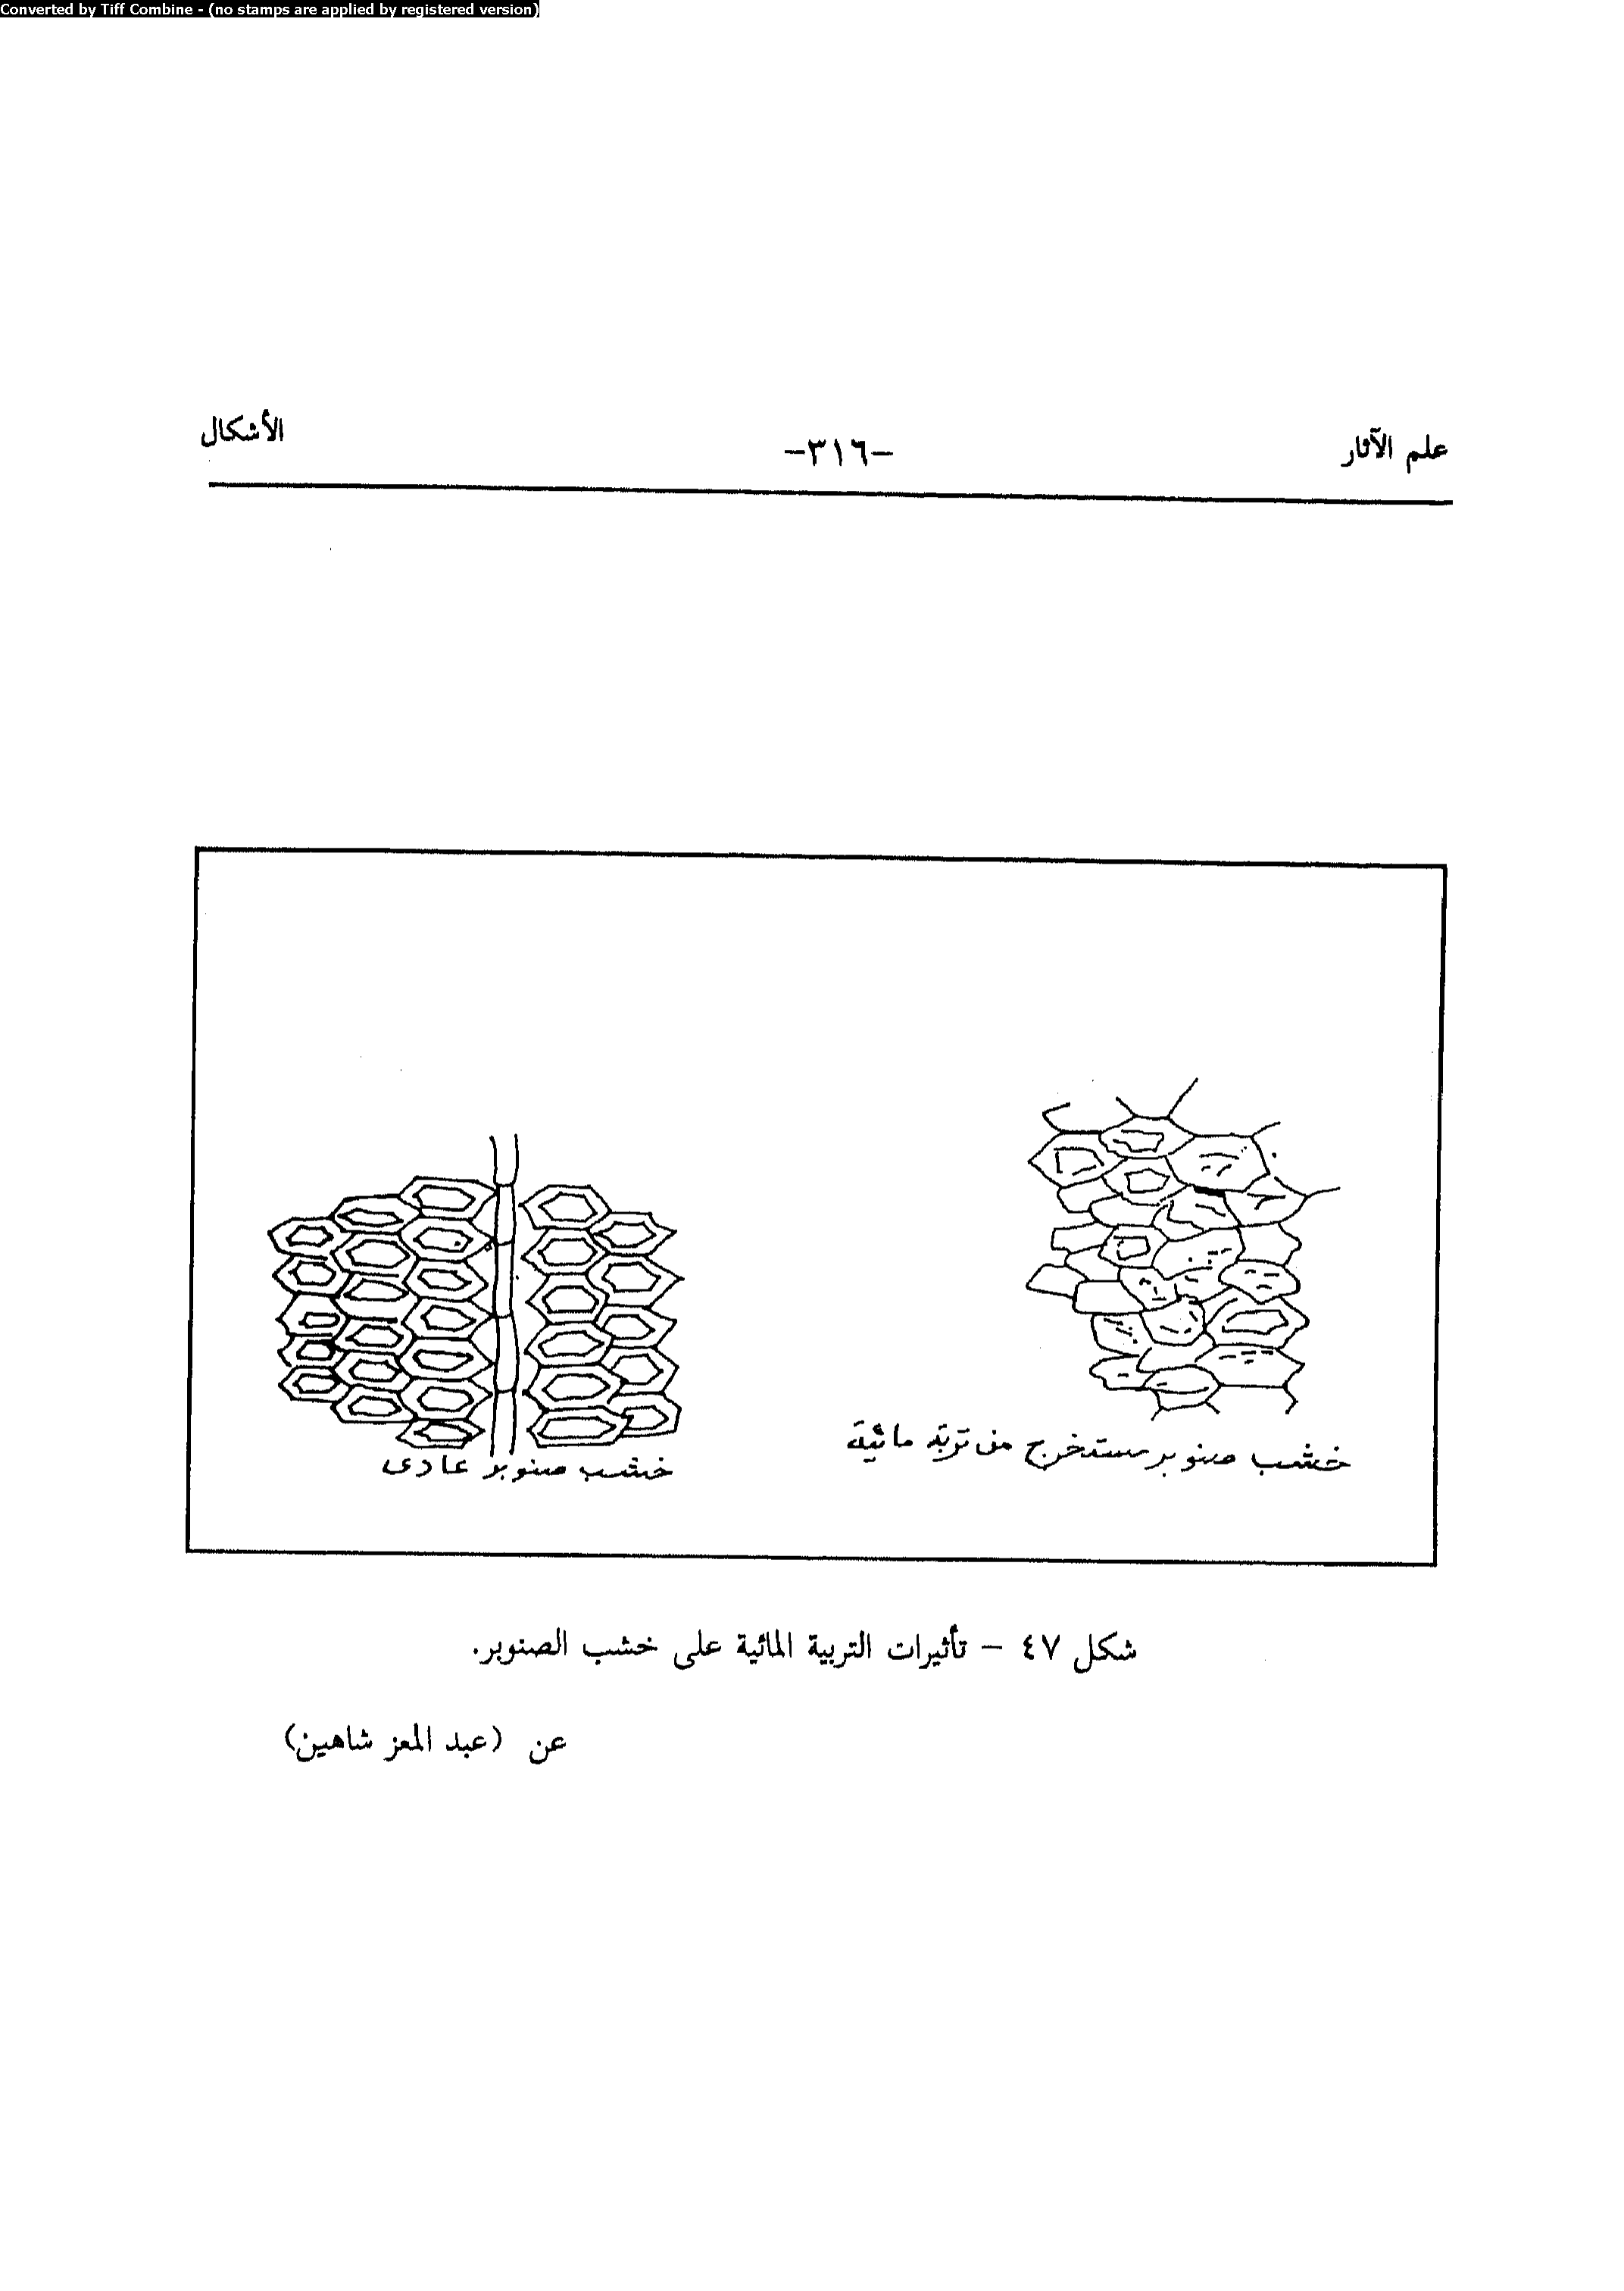 Converted by Tiff Combine - (no stamps are applied by registered version)
علم الآثار -٣١٦- الأشكال
خشب صنوبر مستخرج من تربة مائية
خشب صنوبر عادى
شكل ٤٧ – تأثيرات التربية المائية على خشب الصنوبر.
عن (عبد المعز شاهين)